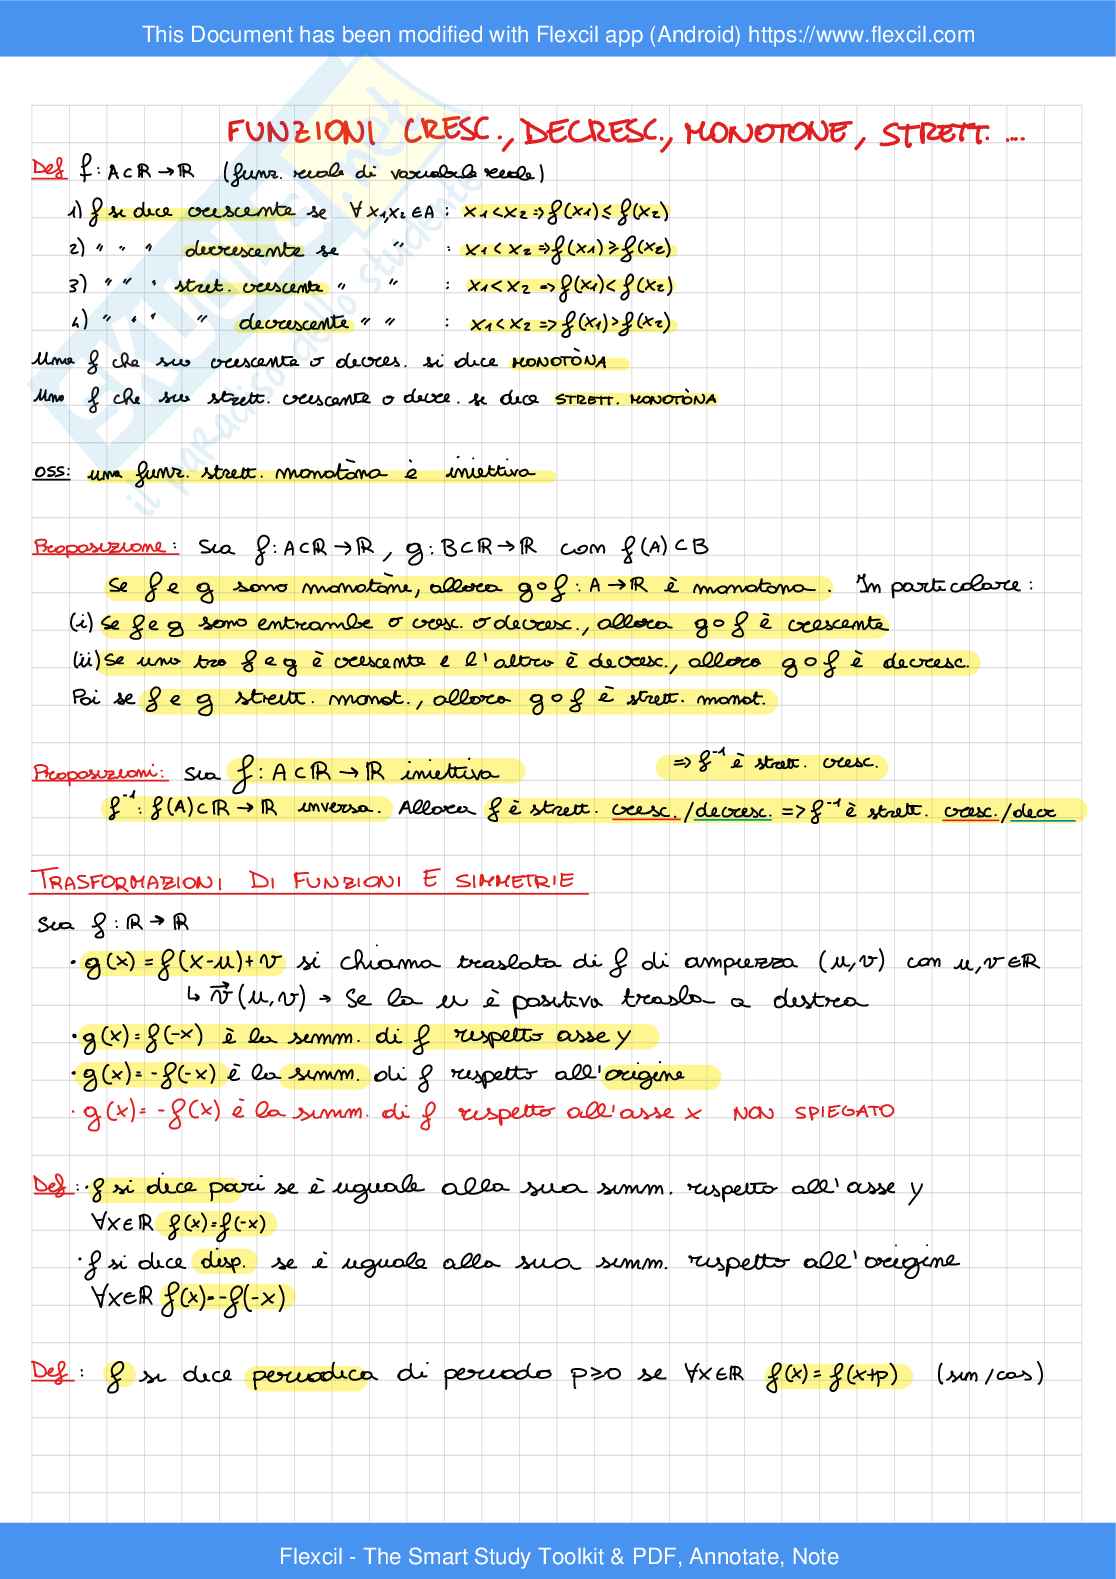 This Document has been modified with Flexcil app (Android) https://www.flexcil.com
FUNZIONI CRESC., DECRESC., MONOTONE, STRETT. ...
Def f: A⊂ℝ→ℝ (funz. reale di variabile reale)
1) f si dice crescente se ∀x1,x2∈A : x1<x2 => f(x1)≤f(x2)
2) " " " decrescente se " : x1<x2 => f(x1)≥f(x2)
3) " " " stret. crescente " " : x1<x2 => f(x1)<f(x2)
4) " " " " decrescente " " : x1<x2 => f(x1)>f(x2)
Una f che sia crescente o decres. si dice MONOTÒNA
Una f che sia strett. crescente o decre. si dice STRETT. MONOTÒNA
OSS: una funz. strett. monotòna è iniettiva
Proposizione: Sia f: A⊂ℝ→ℝ, g: B⊂ℝ→ℝ com f(A)⊂B
Se f e g sono monotòne, allora g∘f: A→ℝ è monotona. In particolare:
(i) Se f e g sono entrambe o cresc. o decresc., allora g∘f è crescente
(ii) Se una tra f e g è crescente e l'altra è decresc., allora g∘f è decresc.
Poi se f e g strett. monot., allora g∘f è strett. monot.
Proposizioni: Sia f: A⊂ℝ→ℝ iniettiva => f⁻¹ è strett. cresc.
f⁻¹: f(A)⊂ℝ→ℝ inversa. Allora f è strett. cresc./decresc. => f⁻¹ è strett. cresc./decr
TRASFORMAZIONI DI FUNZIONI E SIMMETRIE
Sia f: ℝ→ℝ
• g(x) = f(x-u)+v si chiama traslata di f di ampiezza (u,v) con u,v∈ℝ
↳ v⃗(u,v) → Se la u è positiva trasla a destra
• g(x)=f(-x) è la simm. di f rispetto asse y
• g(x)=-f(-x) è la simm. di f rispetto all'origine
• g(x)=-f(x) è la simm. di f rispetto all'asse x NON SPIEGATO
Def: • f si dice pari se è uguale alla sua simm. rispetto all'asse y
∀x∈ℝ f(x)=f(-x)
• f si dice disp. se è uguale alla sua simm. rispetto all'origine
∀x∈ℝ f(x)=-f(-x)
Def: f si dice periodica di periodo p≥0 se ∀x∈ℝ f(x)=f(x+p) (sin/cos)
Flexcil - The Smart Study Toolkit & PDF, Annotate, Note
SKUOLA.net
il paradiso dello studente